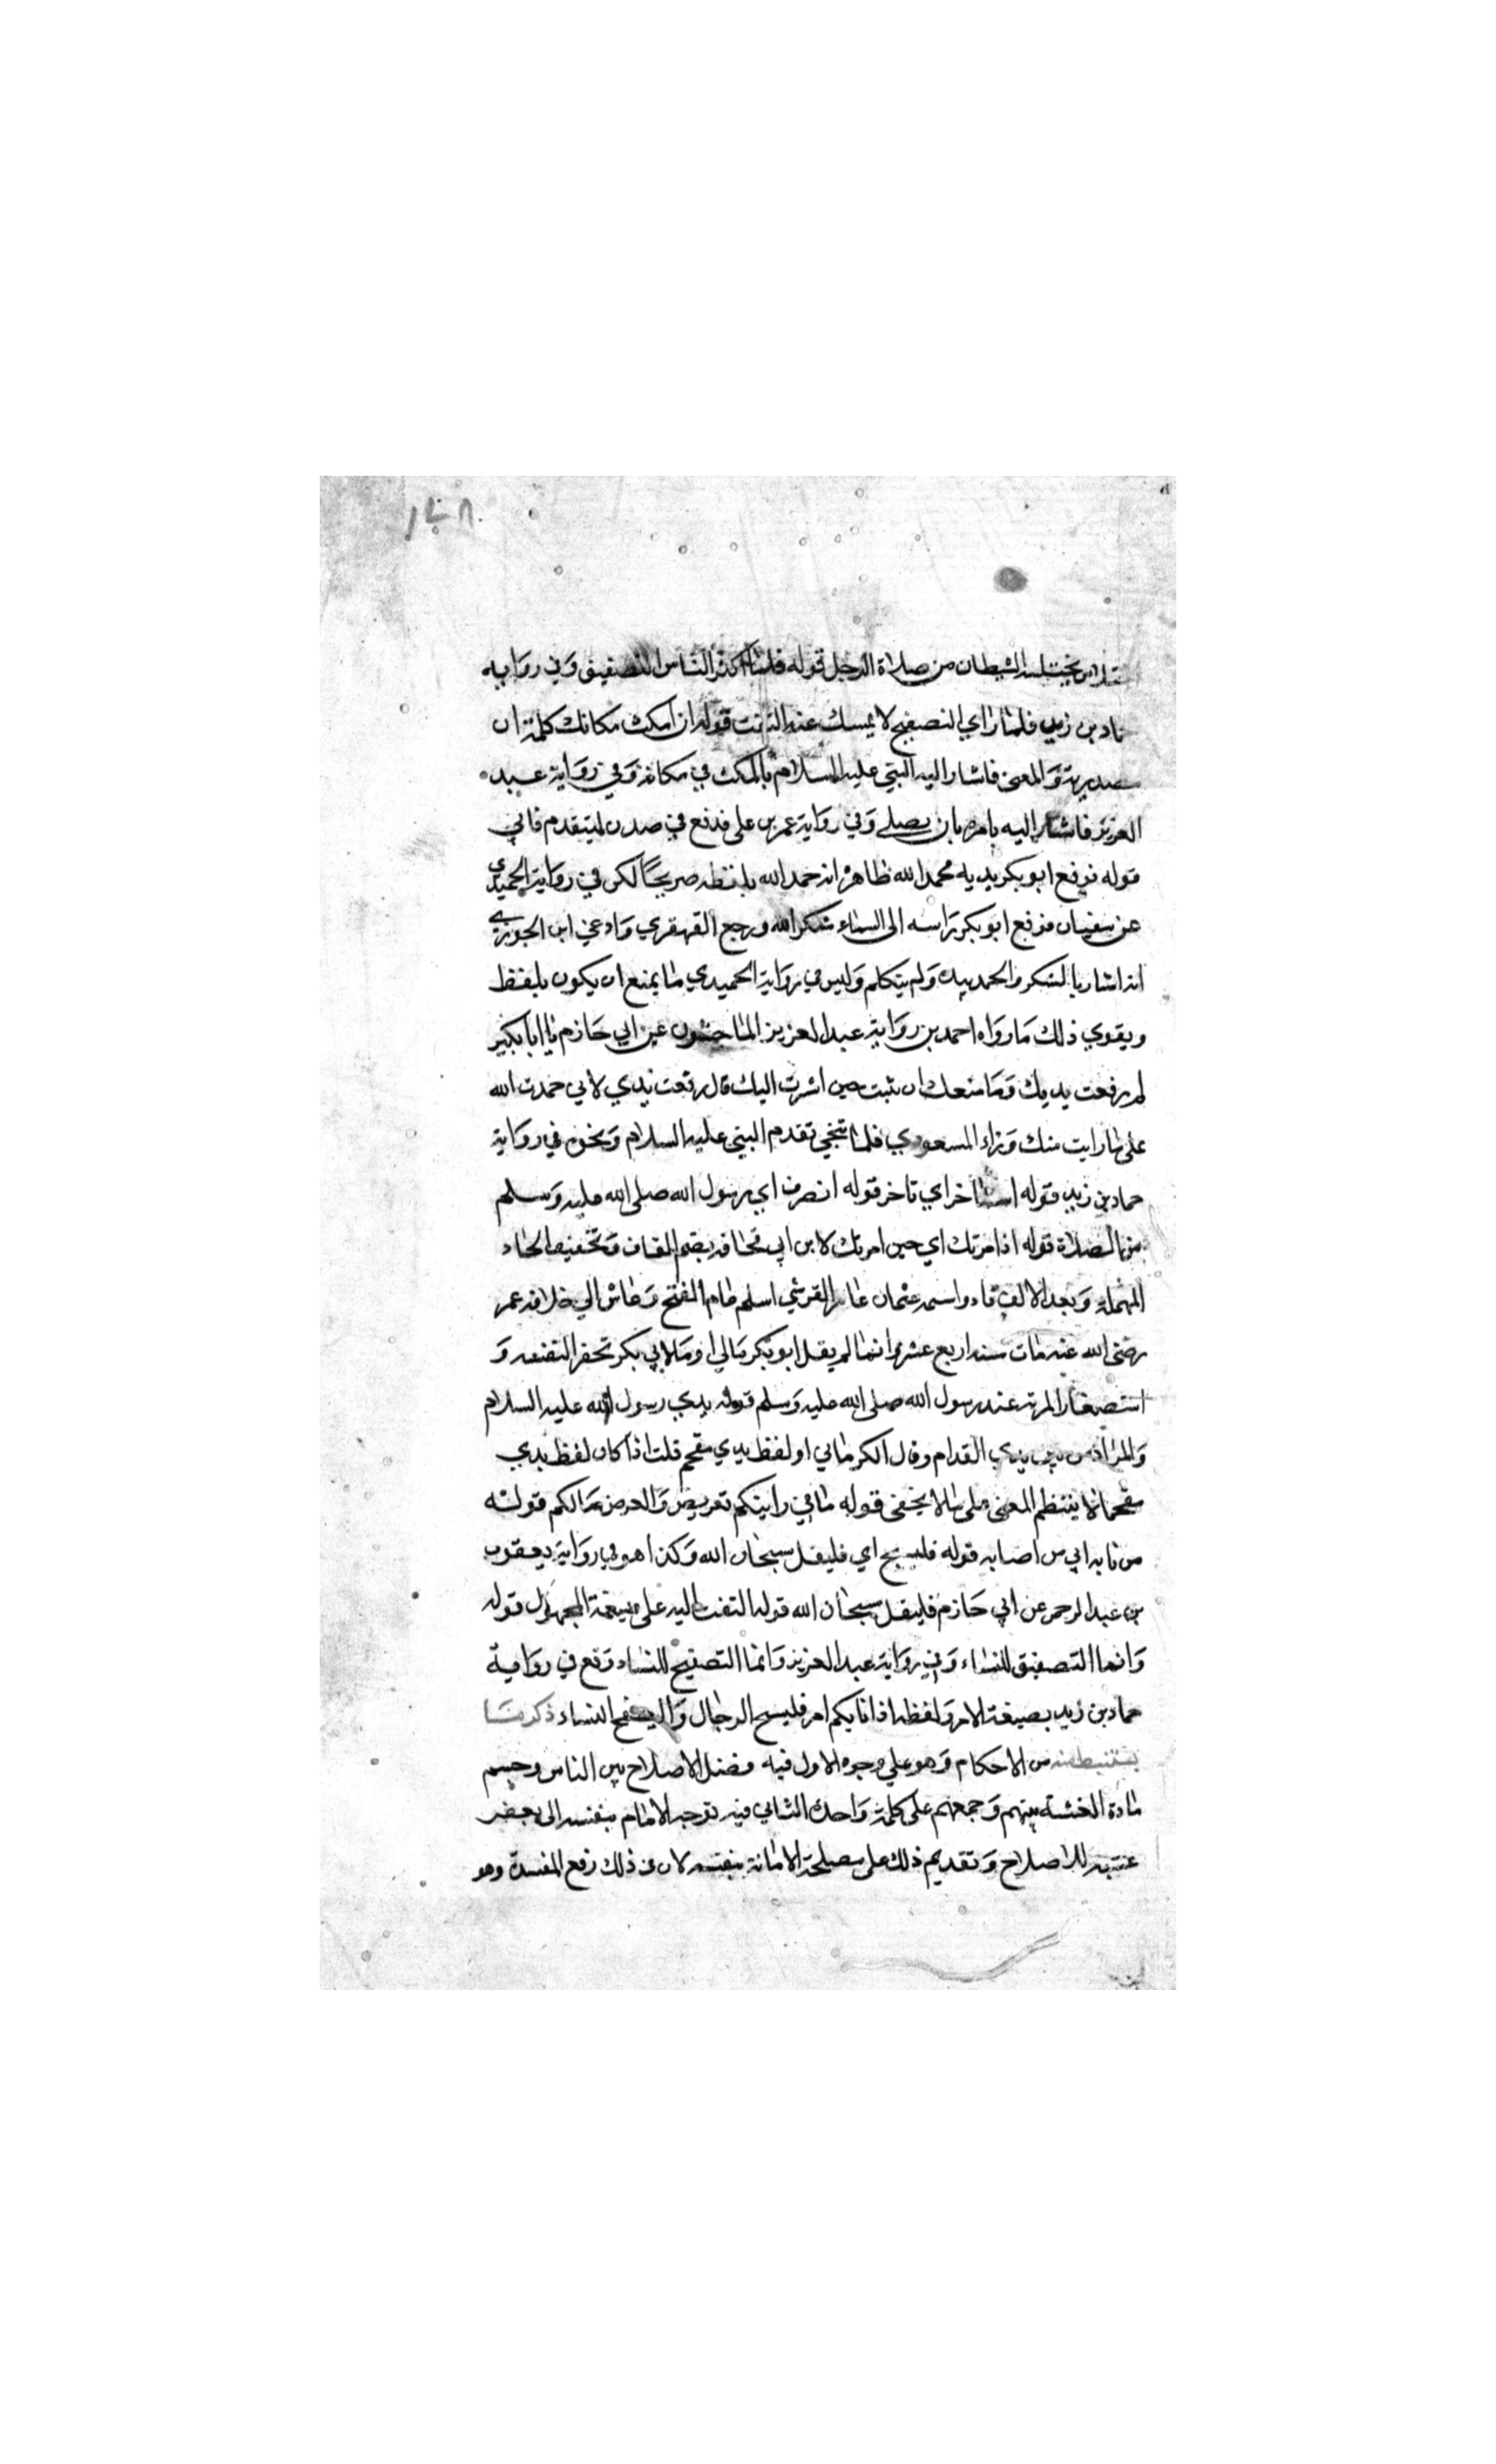 يختلسه الشيطان من صلاة الرجل قوله فلما اكثر الناس التصفيق وَفي روَايه
ماد بن زيد فلما راي التصفيح لا يمسك عنه التفت قوله ان امكث مكانك كلمة ان
مصدرية وَالمعنى فاشار اليه النبي عليه السلام بالمكث في مكانه وَفي روَاية عبد
العزيز فاشار اليه يامره بان يصلي وَفي روَاية عمر بن على فدفع في صدره ليتقدم فابي
قوله فرفع ابو بكر يديه محمد الله ظاهره انه حمد الله بلفظه صريحًا لكن في روَاية الحميدي
عن سفيان فرفع ابو بكر رَاسه الى السماء شكر الله ورجع القهقري وَادعي ابن الجوزي
انه اشار بالشكر والحمد بيده وَلم يتكلم وَليس في روَاية الحميدي ما يمنع ان يكون بلفظ
ويقوي ذلك مَا روَاه احمد بن روَاية عبد العزيز الماجشون عن ابي حَازم يا ابا بكر
لم رفعت يديك وَمَا منعك ان تثبت حين اشرت اليك قال رفعت يدي لاني حمدت الله
على ما رايت منك وَزاد المسعودي فلما تنحي تقدم النبي عليه السلام وَنحوه في روَاية
حماد بن زيد قوله استاخر اي تاخر قوله انصرف اي رسول الله صلى الله عليه وَسلم
من الصلاة قوله اذ امرتك اي حين امرتك لابن ابي قحافه بضم القاف وَتخفيف الحاء
المهملة وَبعد الالف فاء واسمه عثمان عامر القرشي اسلم عام الفتح وَعاش الي خلافه عمر
رضى الله عنه مات سنه اربع عشر وانما لم يقل ابو بكر مَا لي او مَا لابي بكر تحقر النفسه وَ
استصغار المرتبه عند رسول الله صلى الله عليه وَسلم قوله يدي رسول الله عليه السلام
وَالمراد من بين يدي القدام وقال الكرماني او لفظ يدي مقحم قلت اذا كان لفظ يدي
مقحما لا ينتظم المعنى على ما لا يخفى قوله ما لي رايتكم تعريض وَالغرض مَا لكم قوله
من نابه اي من اصابه قوله فليسبح اي فليقل سبحان الله وَكذا هو في روَاية يعقوب
بن عبد الرحمن عن ابي حَازم فليقل سبحان الله قوله التفت اليه على صيغة المجهول قوله
وَانما التصفيق للنساء وَفي روَاية عبد العزيز وَانما التصفيح للنساء وَقع في روَاية
حماد بن زيد بصيغة الامر وَلفظه اذا نابكم امر فليسبح الرجال وَاليصفح النساء ذكر مَا
يستنبط منه من الاحكام وَهو علي وجوه الاول فيه فضل الاصلاح بين الناس وحسم
مادة الفتنة بينهم وَجمعهم على كلمة وَاحدة الثاني فيه توجه الامام بنفسه الى بعض
عتبه للاصلاح وَتقديم ذلك على مصلحة الامامة بنفسه لان في ذلك رفع المفسدة وهو